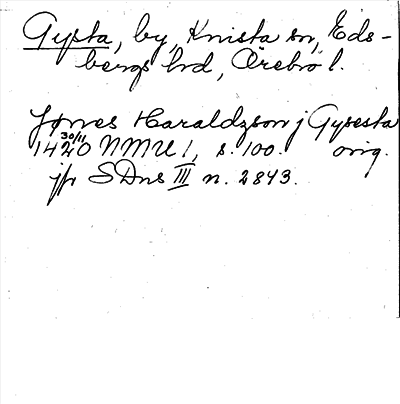 Gypta, by, Knista sn, Eds-
bergs hrd, Örebro l.
Jønes Haraldzson j Gysesta
1420 30/11 NMU 1, s. 100. orig.
jfr SDns III n. 2843.